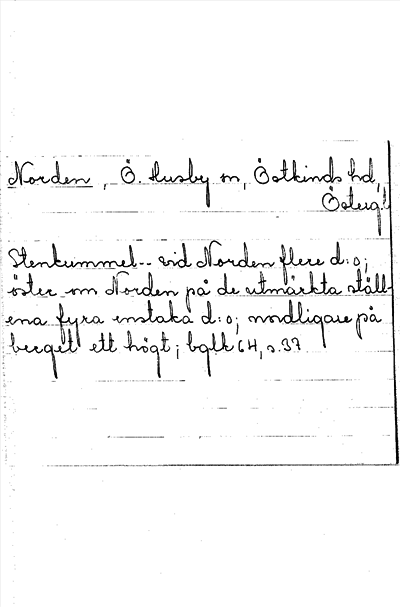 Norden, Ö. Husby sn, Östkinds hd,
Östergl
Stenkummel-- vid Norden flere d:o;
öster om Norden på de utmärkta ställ-
ena fyra enstaka d:o; nordligare på
berget ett högt; bglk 64, s.37